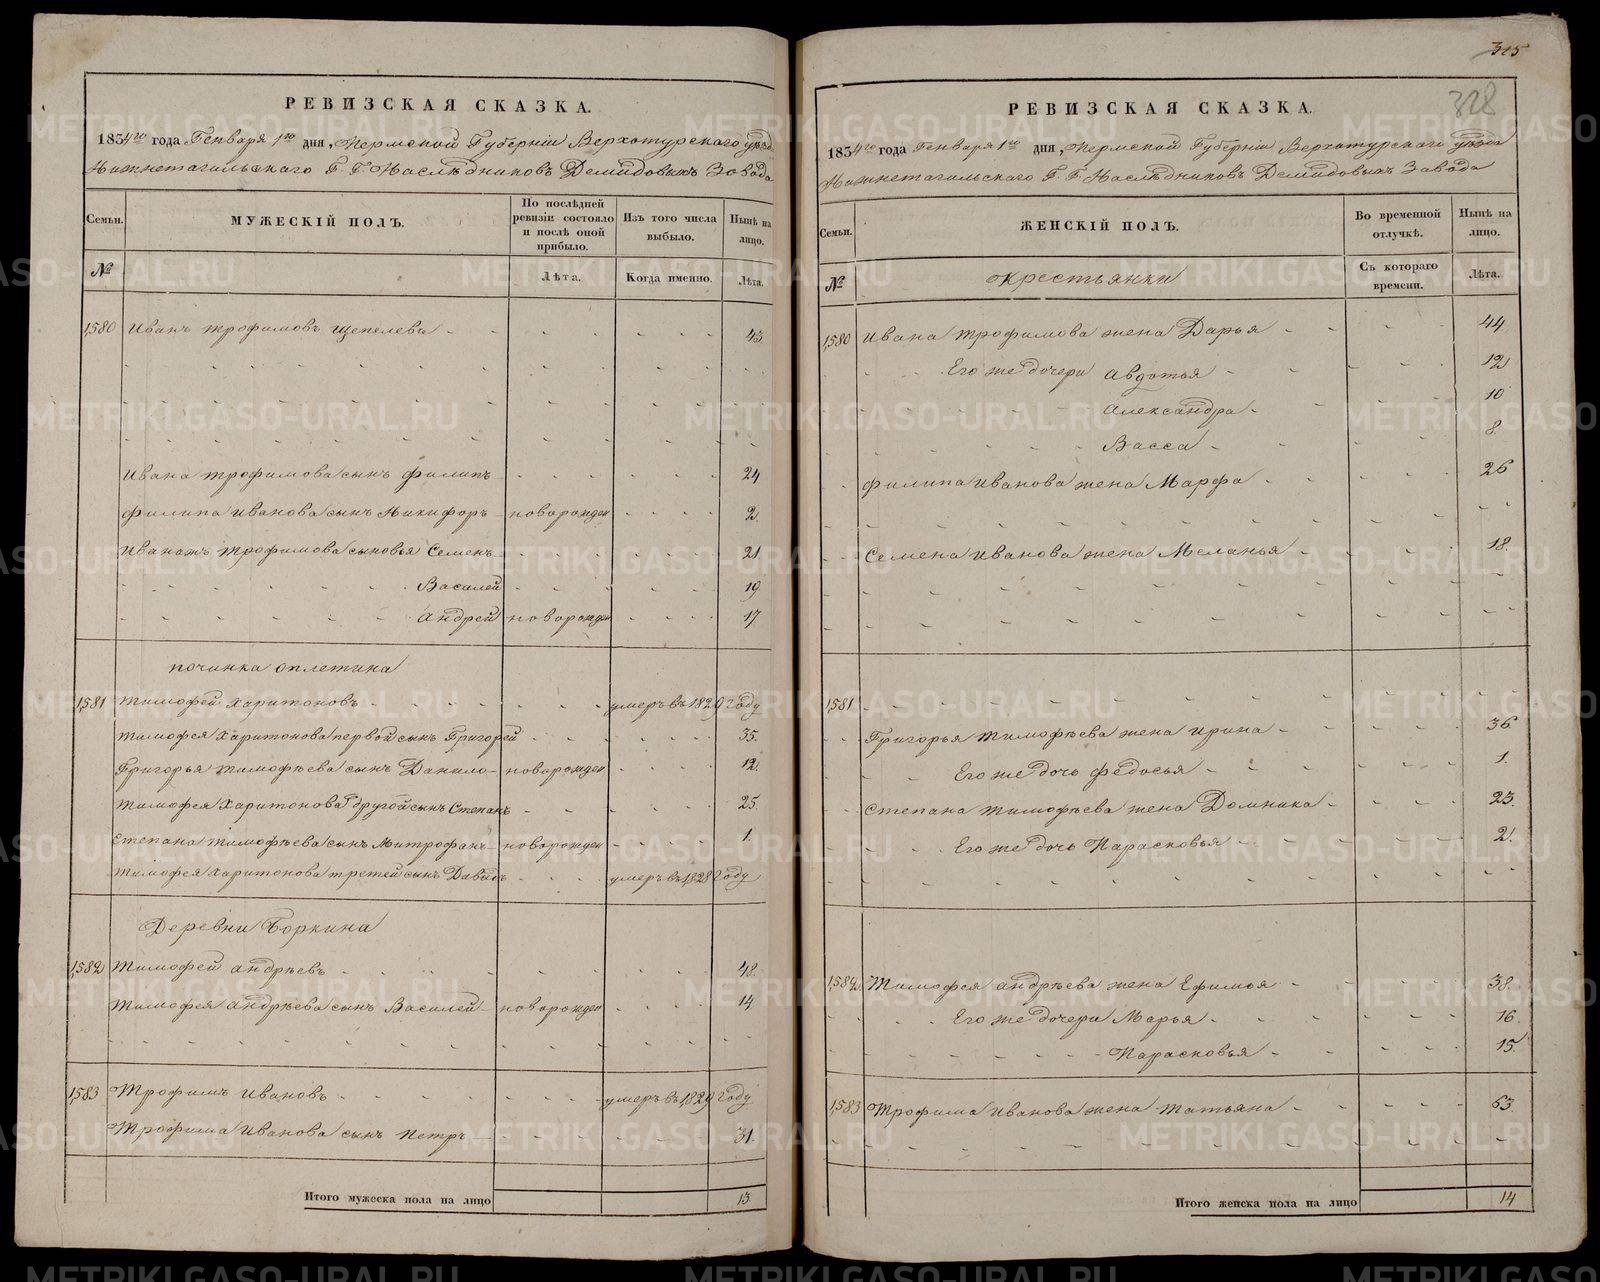 РЕВИЗСКАЯ СКАЗКА.
1834го года Генваря 1го дня, Пермской Губернiи Верхотурскаго уѣзда
Нижнетагильскаго Г. Г. Наслѣдниковъ Демидовыхъ Завода
Семьи.
МУЖЕСКІЙ ПОЛЪ.
По послѣдней ревизіи состояло и послѣ оной прибыло.
Изъ того числа выбыло.
Нынѣ на лицо.
№
Лѣта.
Когда именно.
Лѣта.
1,580 Иванъ Трофимовъ Щепелевъ 43.
Ивана Трофимова сынъ Филипъ 24
Филипа Иванова сынъ Никифоръ новорожден 2.
Иванажъ Трофимова сыновья Семенъ 21
Василей 19.
Андрей новорожден 17
починка оплетина
1,581 Тимофей Харитоновъ умеръ въ 1829 году
Тимофея Харитонова первой сынъ Григорей 35.
Григорья Тимофѣева сынъ Данило новорожден 12.
Тимофея Харитонова другой сынъ Степанъ 25.
Степана Тимофѣева сынъ Митрофанъ новорожден 1.
Тимофея Харитонова третей сынъ Давидъ умеръ въ 1828 году
Деревни Боркина
1,582 Тимофей Андрѣевъ 48.
Тимофея Андрѣева сынъ Василей новорожден 14
1,583 Трофимъ Ивановъ умеръ въ 1,829 году
Трофима Иванова сынъ Петръ 31.
Итого мужеска пола на лицо 13
315
328
РЕВИЗСКАЯ СКАЗКА.
1834го года Генваря 1го дня, Пермской Губернiи Верхотурскаго уѣзда
Нижнетагильскаго Г. Г. Наслѣдниковъ Демидовыхъ Завода
Семьи.
ЖЕНСКІЙ ПОЛЪ.
Во временной отлучкѣ.
Нынѣ на лицо.
№
Крестьянки
Съ котораго времени.
Лѣта.
1,580 Ивана Трофимова жена Дарья 44
Его же дочери Авдотья 12
Александра 10
Васса 8.
Филипа Иванова жена Марфа 26
Семена Иванова жена Меланья 18.
1,581
Григорья Тимофѣева жена Ирина 36
Его же дочь Федосья 1.
Степана Тимофѣева жена Домника 23.
Его же дочь Парасковья 2.
1,582 Тимофея Андрѣева жена Ефимья 38.
Его же дочери Марья 16.
Парасковья 15.
1,583 Трофима Иванова жена Татьяна 63.
Итого женска пола на лицо 14
METRIKI.GASO-URAL.RU